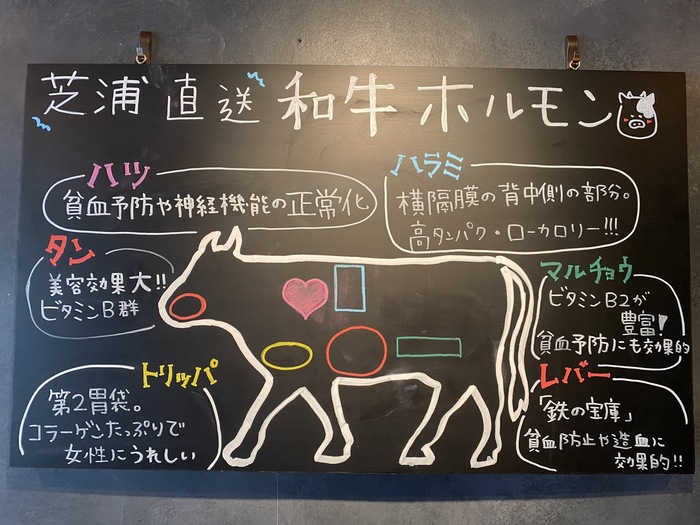 芝浦直送 和牛ホルモン
ハツ
貧血予防や神経機能の正常化
ハラミ
横隔膜の背中側の部分。
高タンパク・ローカロリー!!!
タン
美容効果大!!
ビタミンB群
マルチョウ
ビタミンB2が
豊富!
貧血予防にも効果的
トリッパ
第2胃袋。
コラーゲンたっぷりで
女性にうれしい
レバー
「鉄の宝庫」
貧血防止や造血に
効果的!!